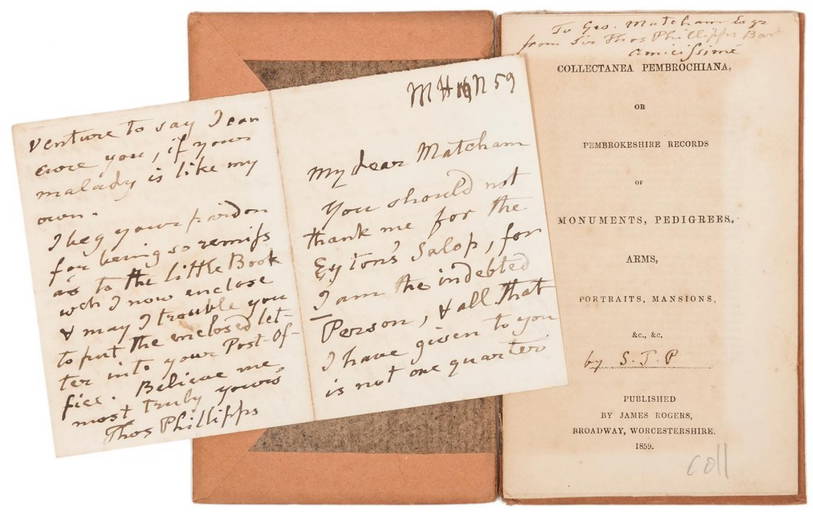 venture to say I can
cure you, if your
malady is like my
own.
I beg your pardon
for being so remiſs
as to the little Book
wch I now enclose
& may I trouble you
to put the enclosed let-
ter into your Post-Of-
fice. Believe me,
most truly yours
Thos Phillipps
MHn 59
My dear Matcham
You should not
thank me for the
Eyton's Salop, for
I am the indebted
Person, & all that
I have given to you
is not one quarter
To Geo. Matcham Esqr
from Sir Thos Phillipps Bart
amiciſsimé
COLLECTANEA PEMBROCHIANA,
OR
PEMBROKESHIRE RECORDS
OF
MONUMENTS, PEDIGREES,
ARMS,
PORTRAITS, MANSIONS,
&c., &c.
by S. T. P
PUBLISHED
BY JAMES ROGERS,
BROADWAY, WORCESTERSHIRE.
1859.
coll